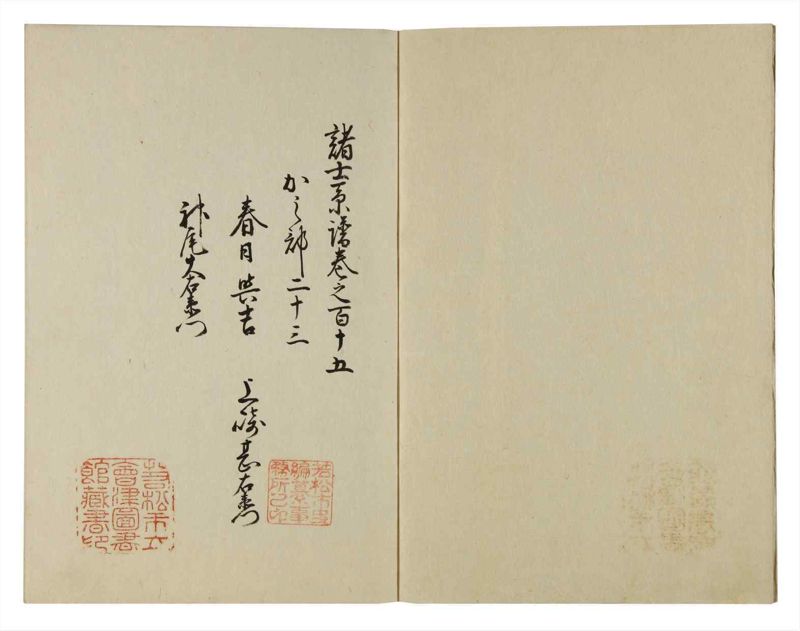 諸士系譜巻之百十五
か之部二十三
春日與吉
上崎甚右衛門
神尾大右衛門
若松市史
編纂事
務所之印
若松市立
會津圖書
館藏書印